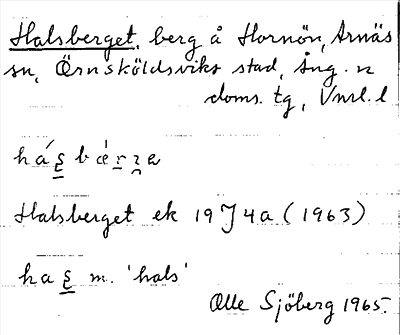 Halsberget, berg å Hornön, Arnäs
sn, Örnsköldsviks stad, Ång. n
doms. tg, Vnrl. l
Halsberget ek 19 J 4a (1963)
m. 'hals'
Olle Sjöberg 1965.